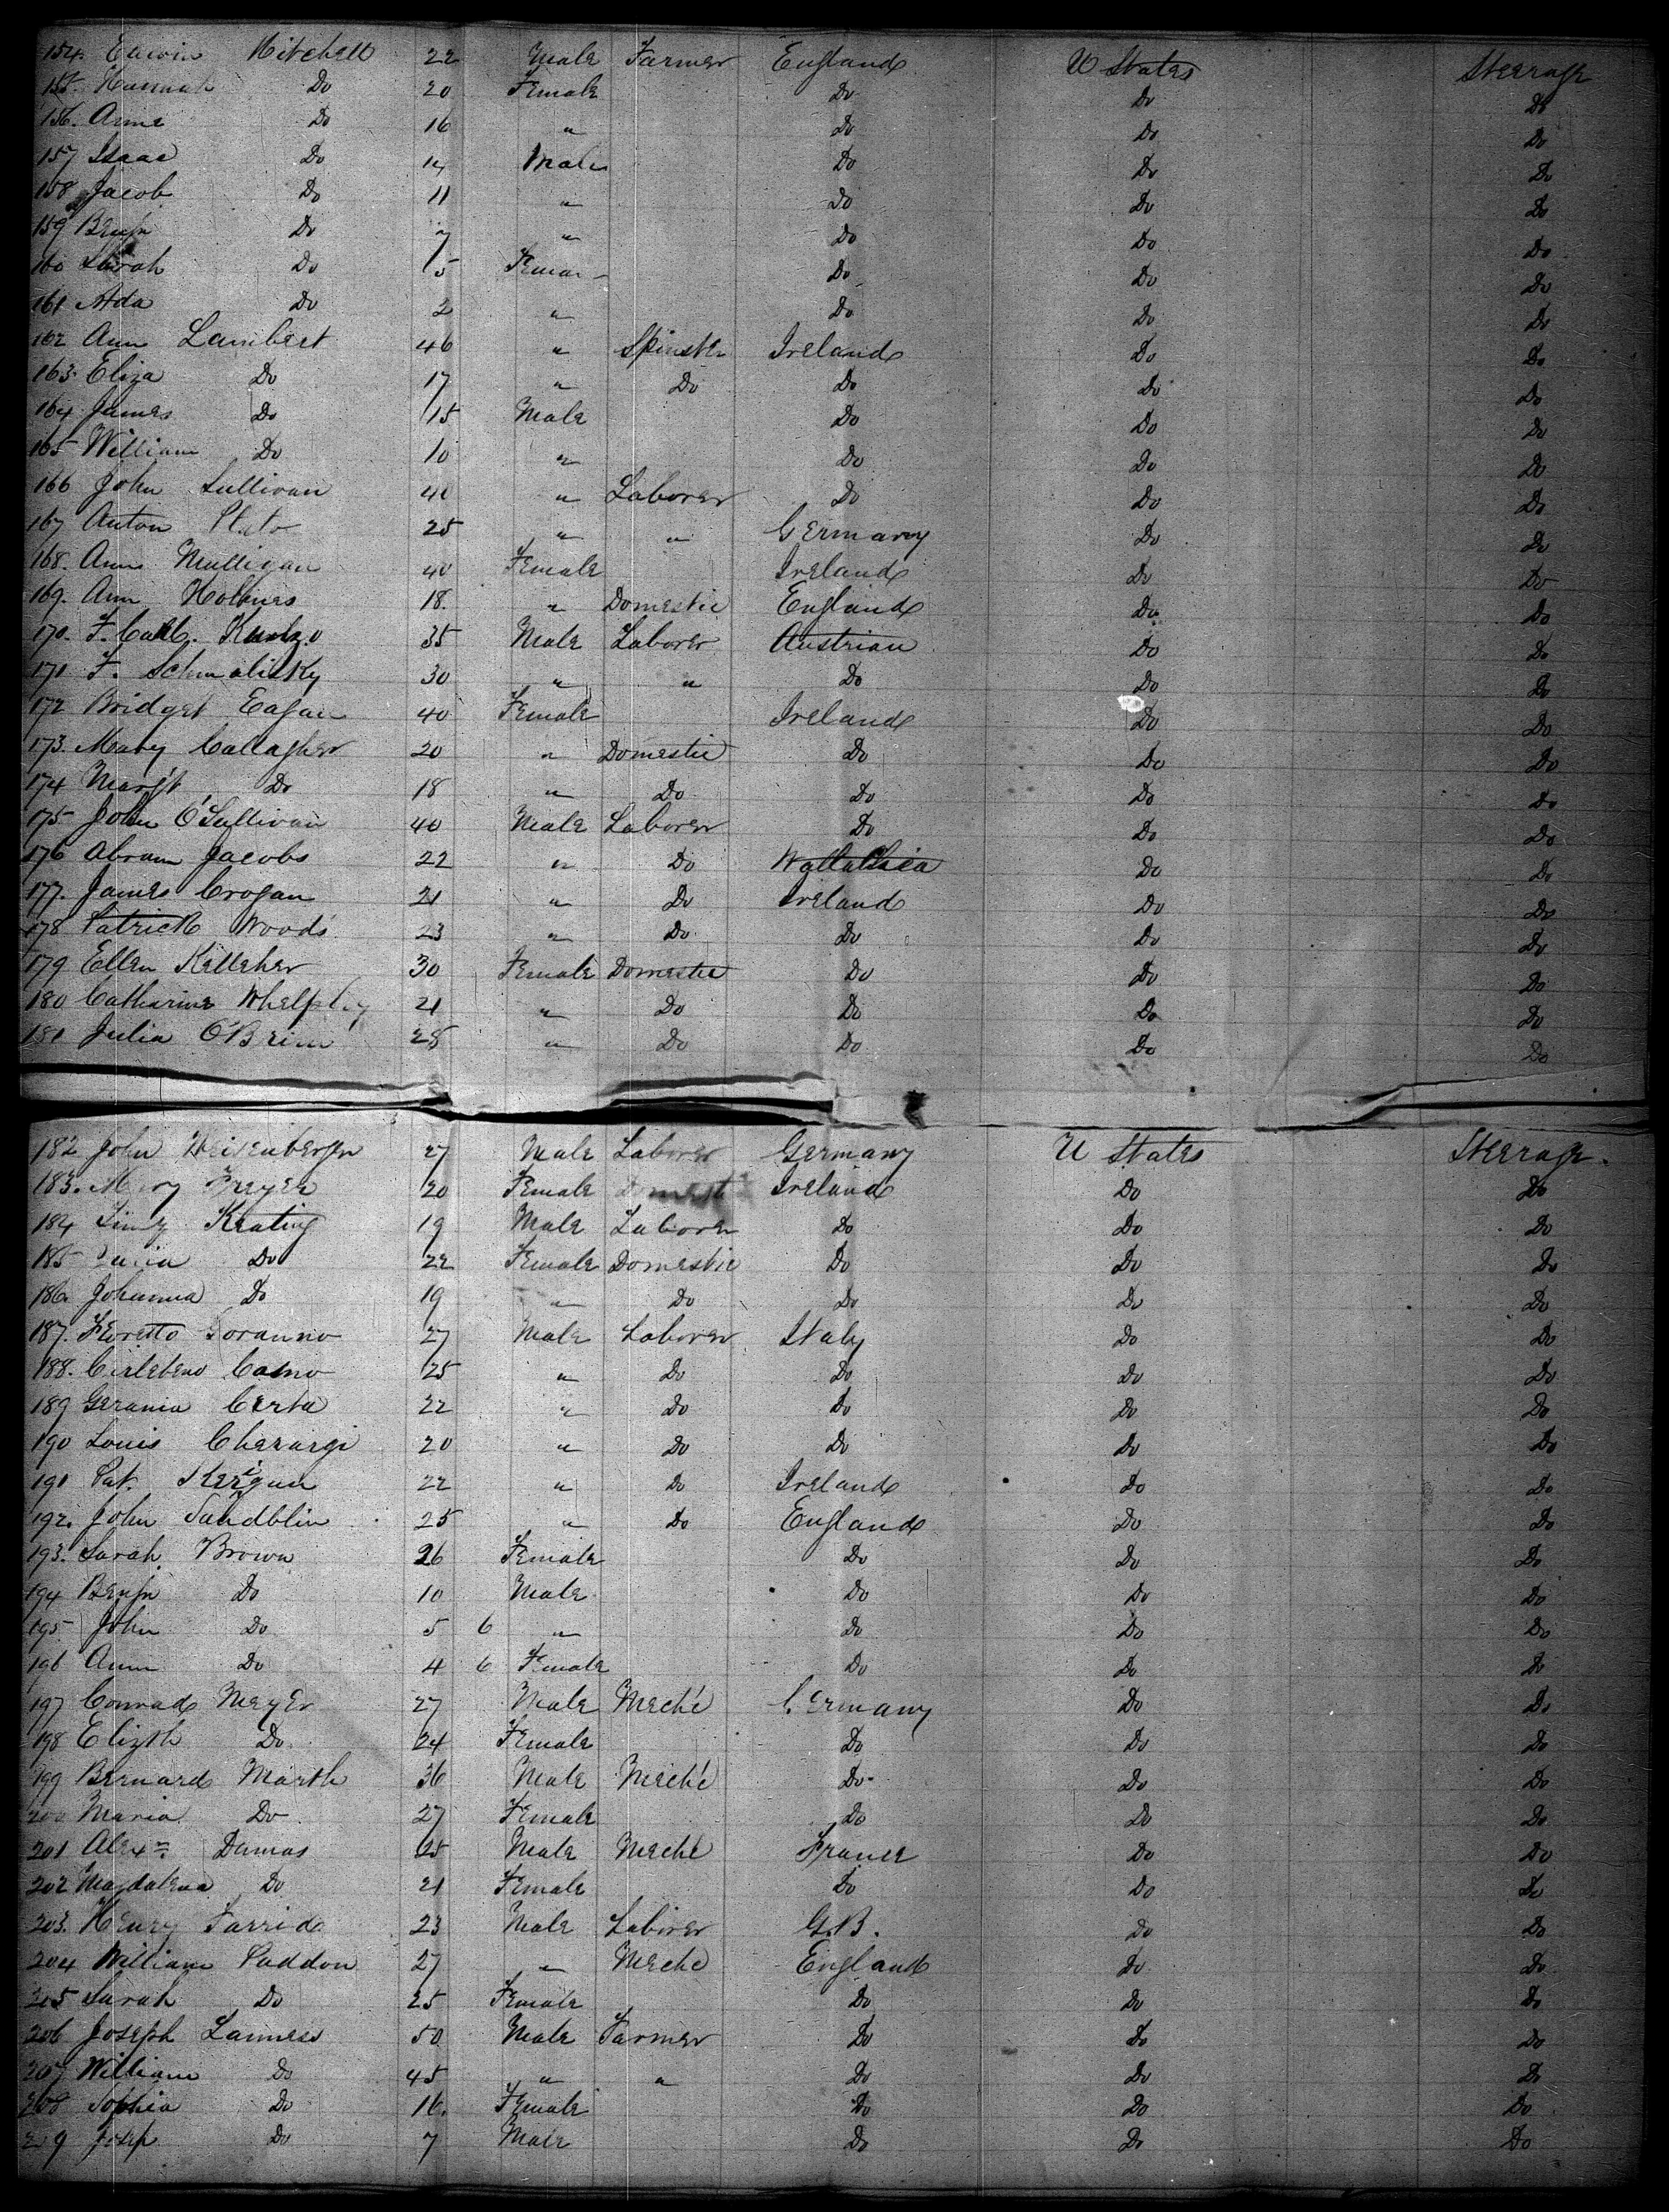 154. Edwin Mitchell 22 Male Farmer England U States Steerage
155. Hannah Do 20 Female Do Do Do
156. Anne Do 16 " Do Do Do
157 Isaac Do 14 Male Do Do Do
158 Jacob Do 11 " Do Do Do
159 Benjn Do 7 " Do Do Do
160 Sarah Do 5 Female Do Do Do
161 Ada Do 2 " Do Do Do
162 Ann Lambert 46 " Spinster Ireland Do Do
163 Eliza Do 17 " Do Do Do Do
164 James Do 15 Male Do Do Do
165 William Do 10 " Do Do Do
166 John Sullivan 40 " Laborer Do Do Do
167 Anton 25 " " Germany Do Do
168. Ann Mulligan 40 Female Ireland Do Do
169. Ann Holmes 18. " Domestic England Do Do
170. F. 35 Male Laborer Austrian Do Do
171 F. Schmalisky 30 " " Do Do Do
172 Bridget Eagan 40 Female Ireland Do Do
173. Mary Callagher 20 " Domestic Do Do Do
174 Margt Do 18 " Do Do Do Do
175 John O'Sullivan 40 Male Laborer Do Do Do
176 Abram Jacobs 22 " Do Wallachia Do Do
177. James Crogan 21 " Do Ireland Do Do
178 Patrick Woods 23 " Do Do Do Do
179 Ellen Kelleher 30 Female Domestic Do Do Do
180 Catharine Whelpley 21 " Do Do Do Do
181 Julia O'Brien 28 " Do Do Do Do
182 John 27 Male Laborer Germany U States Steerage.
183. Mary 20 Female Domestic Ireland Do Do
184 Timy Keating 19 Male Laborer Do Do Do
185 Julia Do 22 Female Domestic Do Do Do
186. Johanna Do 19 " Do Do Do Do
187. Fioretto 27 Male Laborer Italy Do Do
188. Como 25 " Do Do Do Do
189 Gerania Certa 22 " Do Do Do Do
190 Louis Cherurgi 20 " Do Do Do Do
191 Pat. 22 " Do Ireland Do Do
192. John Sandblin 25 " Do England Do Do
193. Sarah Brown 26 Female Do Do Do
194 Benjn Do 10 Male Do Do Do
195 John Do 5 6 " Do Do Do
196 Ann Do 4 6 Female Do Do Do
197 Conrad Meyer 27 Male Meche Germany Do Do
198 Elizth Do 24 Female Do Do Do
199 Bernard Marth 36 Male Meche Do Do Do
200 Maria Do 27 Female Do Do Do
201 Alexr Dumas 25 Male Meche France Do Do
202 Magdalena Do 21 Female Do Do Do
203. Henry Farrid 23 Male Laborer G.B. Do Do
204 William Paddon 27 " Meche England Do Do
205 Sarah Do 25 Female Do Do Do
206 Joseph Lanness 50 Male Farmer Do Do Do
207 William Do 45 " " Do Do Do
208 Sophia Do 16. Female Do Do Do
209 Do 7 Male Do Do Do